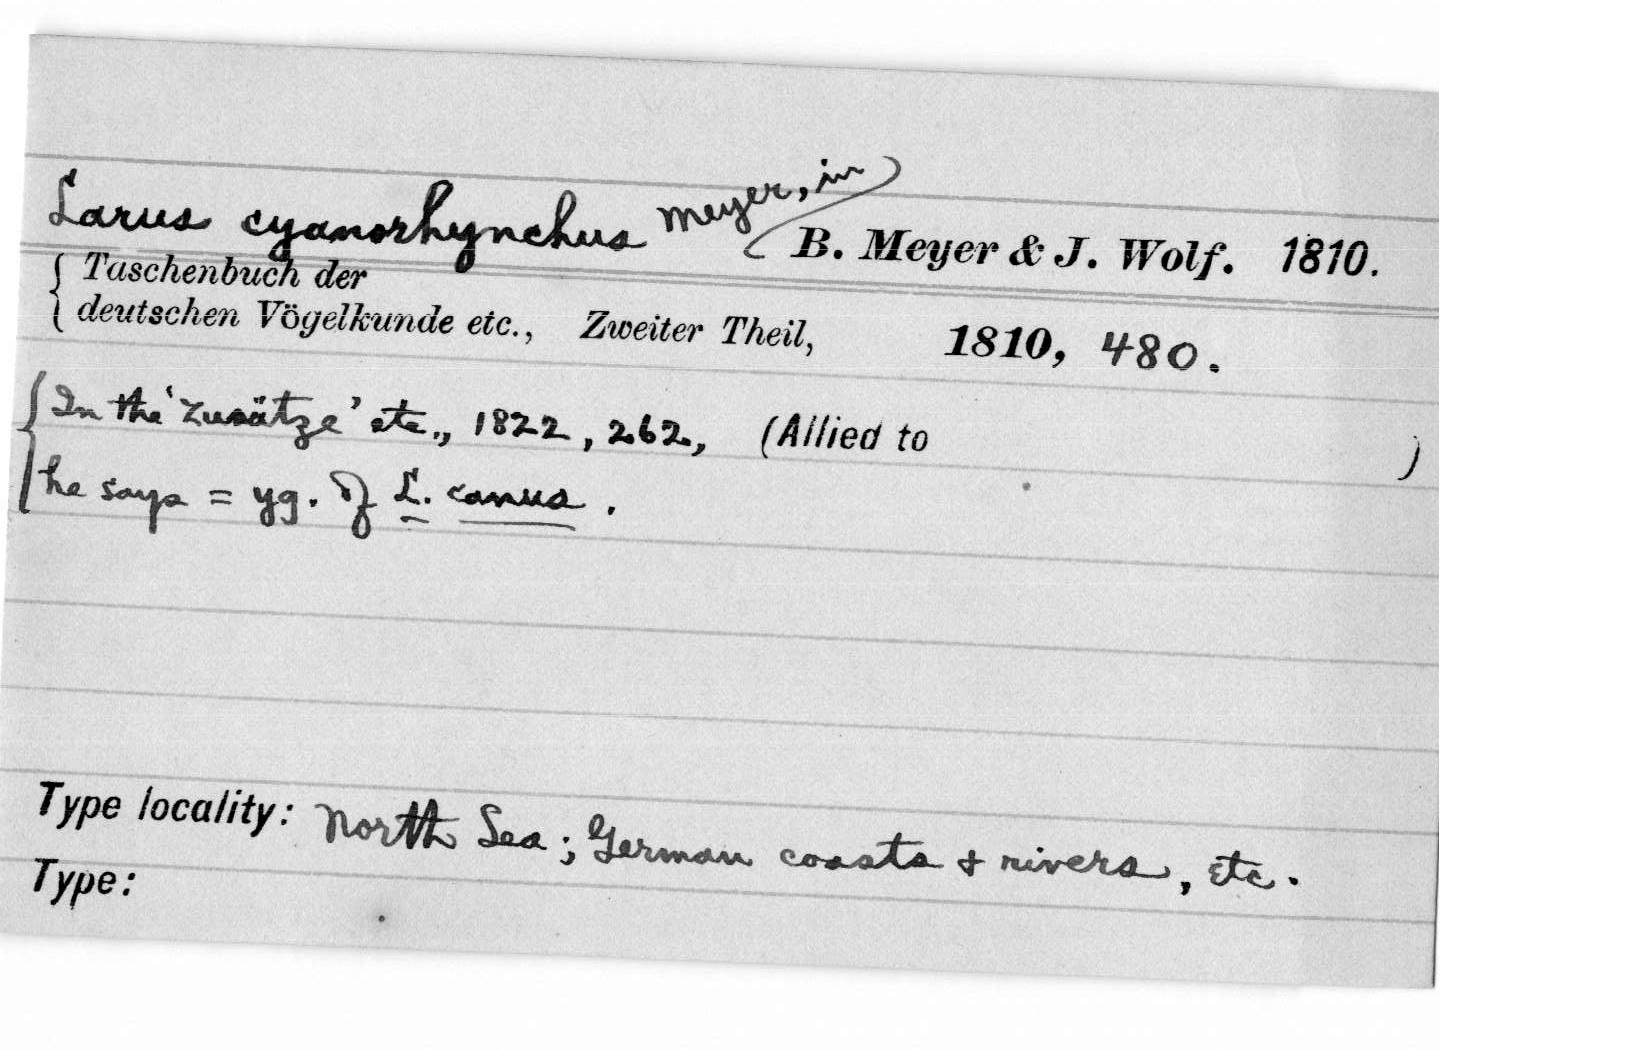 Larus cyanorhynchus Meyer, in B. Meyer & J. Wolf. 1810.
Taschenbuch der
deutschen Vögelkunde etc., Zweiter Theil, 1810, 480.
In the 'Zusätze' etc., 1822, 262, (Allied to )
he says = yg. of L. canus.
Type locality: North Sea; German coasts & rivers, etc.
Type: